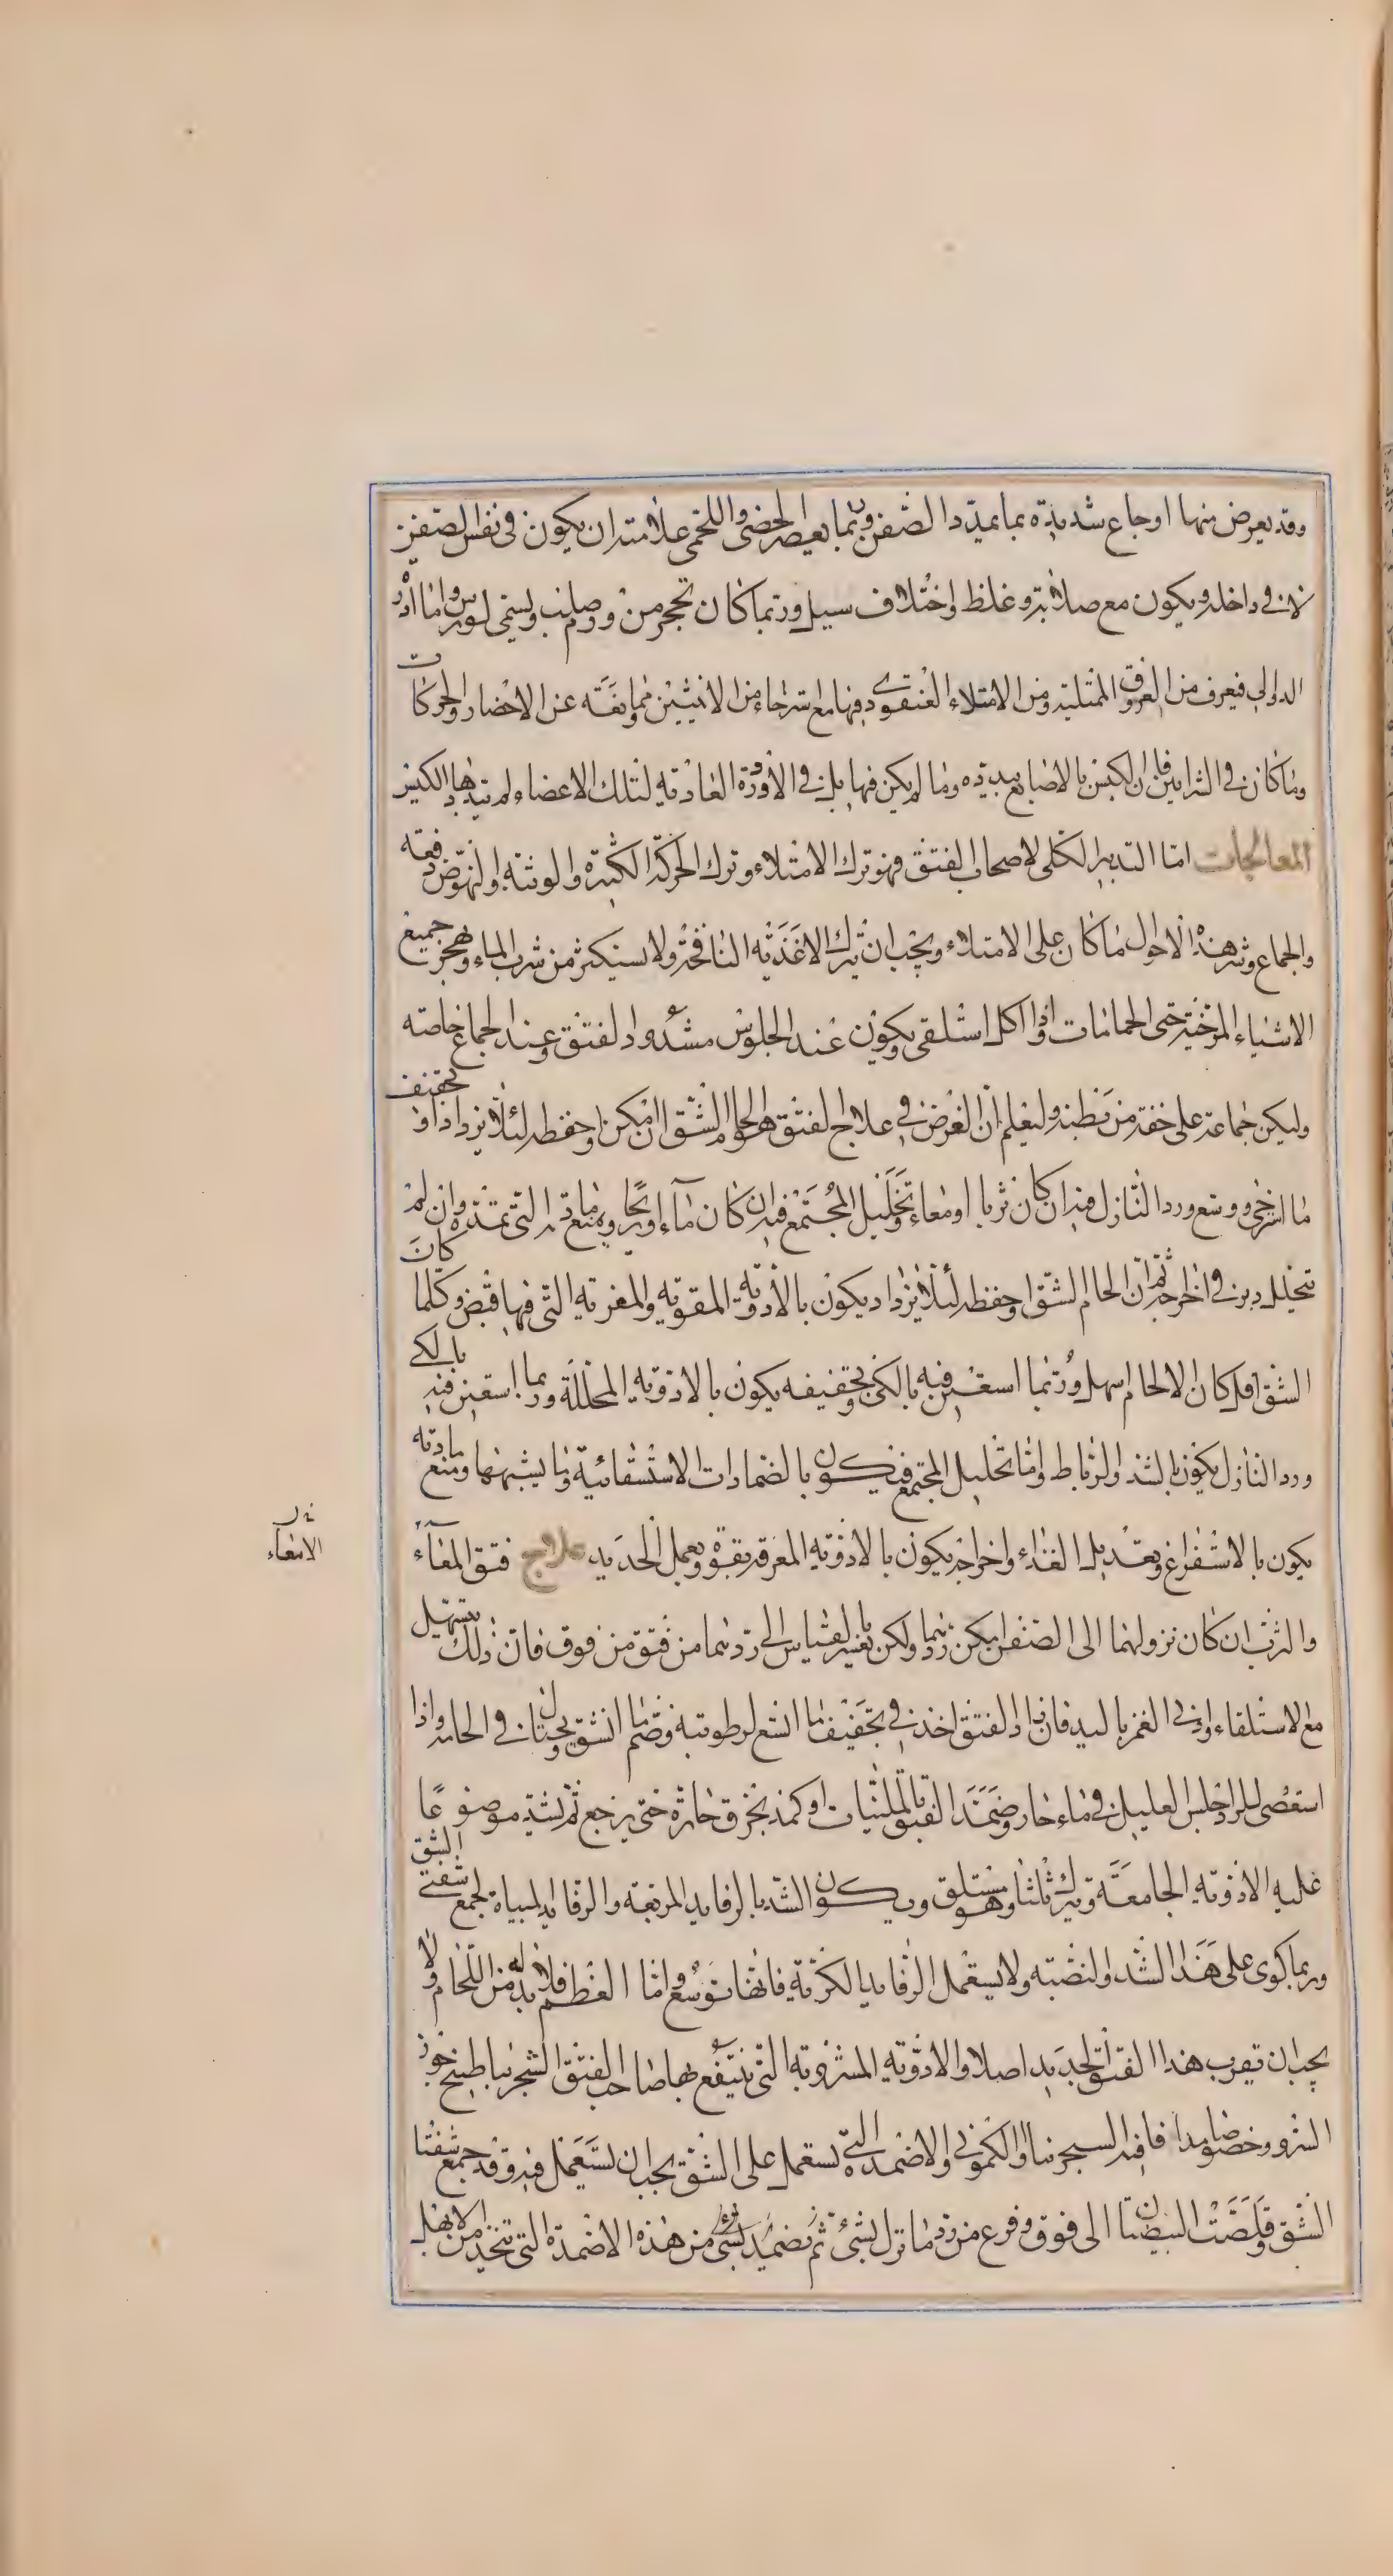 وقد يعرض منها اوجاع شديدة بما يمدد الصفن وبما يعصر الخصى واللحمى علامته ان يكون فى نفس الصفن
لا فى داخله ويكون مع صلابة وغلظ واختلاف سيل وربما كان تحجر من ورم صلب ويسمى لورس واما ادرة
الدوالى فيعرف من العروق الممتلية ومن الامتلاء العنقودى فيها مع استرخاء من الانثيين مما ونعته عن الاحضار والحركات
وما كان فى الشرايين فان الكبس بالاصابع يبدده وما لم يكن فيها بل فى الاوردة الغاذية لتلك الاعضاء لم يتبدد بالكبس
المعالجات اما التدبير الكلى لاصحاب الفتق فهو ترك الامتلاء وترك الحركة الكثيرة والوثبة والنهوض دفعه
والجماع وشر هذه الاحوال ما كان على الامتلاء ويجب ان يترك الاغذيه النافخة ولا يستكثر من شرب الماء ويهجر جميع
الاشياء المرخية حتى الحمامات واذا اكل استلقى ويكون عند الجلوس مشدود الفتق وعند الجماع خاصته
وليكن جماعه على خفة من بطنه وليعلم ان الغرض فى علاج الفتق هو الحام الشق ان امكن او حفظه لئلا يزداد او تجفيف
ما استرخى ووسع ورد النازل فيه ان كان ثربا او معاء وتحليل المجتمع فيه ان كان ماء او ريحا ومنع مادته التى تمده وان لم
يتحلل دبر فى اخراجه ثم ان الحام الشق او حفظه لئلا يزداد يكون بالادوية المقويه والمغريه التى فيها قبض وكلما كان
الشق اقل كان الالحام اسهل وربما استعين فيه بالكى وتجفيفه يكون بالادويه المحللة وربما استعين فيه بالكى
ورد النازل يكون بالشد والرباط واما تحليل المجتمع فيكون بالضمادات الاستسقائية وما يشبهها ومنع مادته
يكون بالاستفراغ وبتعديل الغذاء واخراجه يكون بالادويه المعرقة بقوة وبعمل الحديد علاج فتق المعاء
والثرب ان كان نزولهما الى الصفن امكن ردهما ولكن بغير القياس الى ردهما من فتق من فوق فان ذلك يتسهل
مع الاستلقاء وادنى الغمز باليد فان زاد الفتق اخذ فى تجفيف ما اتسع لرطوبته وضم ما انشق ويحتال فى الحامه واذا
استعصى للرد اجلس العليل فى ماء حار وضمد الفتق بالملينات او كمد بخرق حارة حتى يرجع ثم يشد موضوعا
عليه الادويه الجامعة ويترك ثلثا وهو مستلق ويكون الشد بالرفايد المربعة والرفايد المهياة لجمع شفتى الشق
وربما كوى على هذا الشد والنصبه ولا يستعمل الرفايد الكرية فانها توسع واما العظم فلا بد له من اللحام ولا
يجب ان تقرب هذا الفتق الحديد اصلا والادويه المشروبه التى ينتفع بها صاحب الفتق السجرنيا طبيخ جوز
السرو وخصوصا مدافا فيه السجرنيا والكمونى والاضمدة التى تستعمل على الشق يجب ان تستعمل فيه وقد جمع شفتا
الشق وقلصت البيضتان الى فوق وفرغ من رد ما نزل بشىء ثم تضميد بشىء من هذه الاضمدة التى تتخذ من الابهل
الامعاء